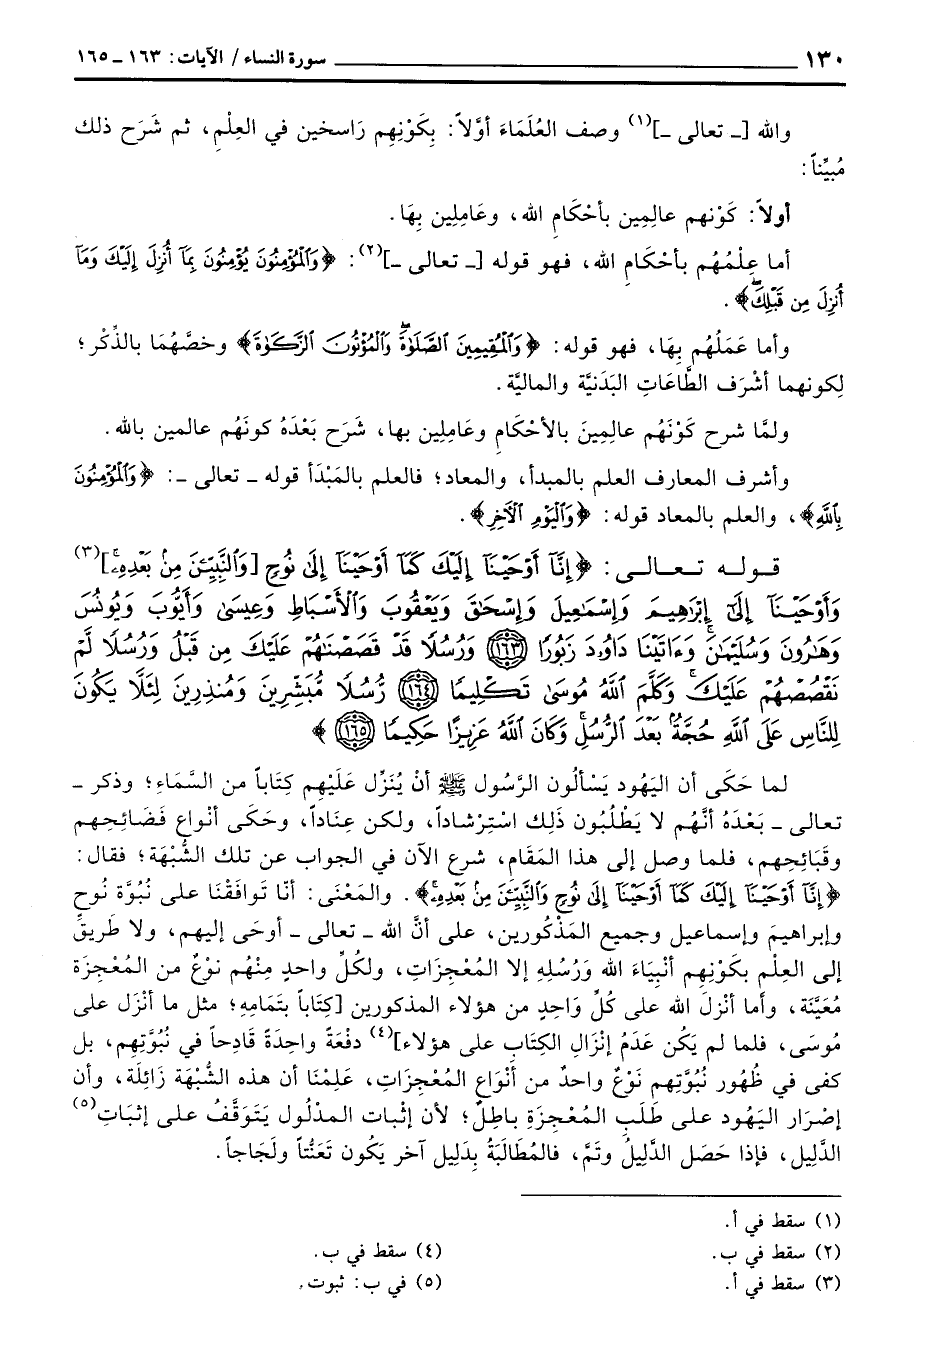 ١٣٠ سورة النساء / الآيات: ١٦٣ ـ ١٦٥
والله [ـ تعالى ـ](١) وصف العُلَمَاءَ أوَّلاً: بِكَوْنِهِم رَاسخين في العِلْمِ، ثم شَرَح ذلك
مُبيِّناً:
أولاً: كَوْنهم عالِمِين بأحْكَامِ الله، وعَامِلِين بِهَا.
أما عِلْمُهُم بأحْكَامِ الله، فهو قوله [ـ تعالى ـ](٢): ﴿وَٱلْمُؤْمِنُونَ يُؤْمِنُونَ بِمَآ أُنزِلَ إِلَيْكَ وَمَآ
أُنزِلَ مِن قَبْلِكَۚ﴾.
وأما عَمَلُهُم بِهَا، فهو قوله: ﴿وَٱلْمُقِيمِينَ ٱلصَّلَوٰةَۚ وَٱلْمُؤْتُونَ ٱلزَّكَوٰةَ﴾ وخصَّهُمَا بالذِّكْر؛
لِكونهما أشْرَف الطَّاعَاتِ البَدَنيَّة والماليَّة.
ولمَّا شرح كَوْنَهُم عالِمِينَ بالأحْكَامِ وعَامِلِين بها، شَرَح بَعْدَهُ كونَهُم عالمين بالله.
وأشرف المعارف العلم بالمبدأ، والمعاد؛ فالعلم بالمَبْدَأ قوله ـ تعالى ـ: ﴿وَٱلْمُؤْمِنُونَ
بِٱللَّهِ﴾، والعلم بالمعاد قوله: ﴿وَٱلْيَوْمِ ٱلْآخِرِ﴾.
قوله تعالى: ﴿إِنَّآ أَوْحَيْنَآ إِلَيْكَ كَمَآ أَوْحَيْنَآ إِلَىٰ نُوحٍ [وَٱلنَّبِيِّـۧنَ مِنۢ بَعْدِهِۦۚ](٣)
وَأَوْحَيْنَآ إِلَىٰٓ إِبْرَٰهِيمَ وَإِسْمَٰعِيلَ وَإِسْحَٰقَ وَيَعْقُوبَ وَٱلْأَسْبَاطِ وَعِيسَىٰ وَأَيُّوبَ وَيُونُسَ
وَهَٰرُونَ وَسُلَيْمَٰنَۚ وَءَاتَيْنَا دَاوُۥدَ زَبُورًا ١٦٣ وَرُسُلًا قَدْ قَصَصْنَٰهُمْ عَلَيْكَ مِن قَبْلُ وَرُسُلًا لَّمْ
نَقْصُصْهُمْ عَلَيْكَۚ وَكَلَّمَ ٱللَّهُ مُوسَىٰ تَكْلِيمًا ١٦٤ رُّسُلًا مُّبَشِّرِينَ وَمُنذِرِينَ لِئَلَّا يَكُونَ
لِلنَّاسِ عَلَى ٱللَّهِ حُجَّةٌۢ بَعْدَ ٱلرُّسُلِۚ وَكَانَ ٱللَّهُ عَزِيزًا حَكِيمًا ١٦٥ ﴾
لما حَكَى أن اليَهُود يَسْألُون الرَّسُول ﷺ أنْ يُنَزِّل عَلَيْهِم كِتَاباً من السَّمَاءِ؛ وذكر ـ
تعالى ـ بَعْدَهُ أنَّهُم لا يَطْلُبُون ذَلِك اسْتِرْشاداً، ولكن عِنَاداً، وحَكَى أنْواع فَضَائِحِهِم
وقَبَائِحِهِم، فلما وصل إلى هذا المَقَام، شرع الآن في الجواب عن تلك الشُّبْهَة؛ فقال:
﴿إِنَّآ أَوْحَيْنَآ إِلَيْكَ كَمَآ أَوْحَيْنَآ إِلَىٰ نُوحٍ وَٱلنَّبِيِّـۧنَ مِنۢ بَعْدِهِۦۚ﴾. والمَعْنَى: أنَّا تَوافَقْنَا على نُبُوَّة نُوحٍ
وإبراهيمَ وإسماعيل وجميع المَذْكُورين، على أنَّ الله ـ تعالى ـ أوحَى إليهم، ولا طَرِيقَ
إلى العِلْم بِكَوْنِهِم أنْبِيَاءَ الله وَرُسُلِهِ إلا المُعْجِزَاتِ، ولكُلِّ واحدٍ مِنْهُم نوْعٌ من المُعْجِزَة
مُعَيَّنَة، وأما أنْزلَ الله على كُلِّ وَاحِدٍ من هؤلاء المذكورين [كِتَاباً بِتَمَامِهِ؛ مثل ما أنْزَل على
مُوسَى، فلما لم يَكُن عَدَمُ إنْزَالِ الكِتَابِ على هؤلاء](٤) دفْعَةً واحِدَةً قَادِحاً في نُبُوَّتِهِم، بل
كفى في ظُهُور نُبُوَّتِهِم نَوْعٌ واحدٌ من أنْوَاع المُعْجِزَاتِ، عَلِمْنَا أن هذه الشُّبْهَة زَائِلَة، وأن
إصْرَار اليَهُود على طَلَبِ المُعْجِزَةِ باطِلٌ؛ لأن إثْبات المدْلُول يَتَوقَّفُ على إثبَاتِ(٥)
الدَّلِيل، فإذا حَصَل الدَّلِيلُ وتَمَّ، فالمُطَالَبَةُ بِدَلِيل آخر يَكُون تَعَنُّتاً ولَجَاجاً.
(١) سقط في أ.
(٢) سقط في ب. (٤) سقط في ب.
(٣) سقط في أ. (٥) في ب: ثبوت.